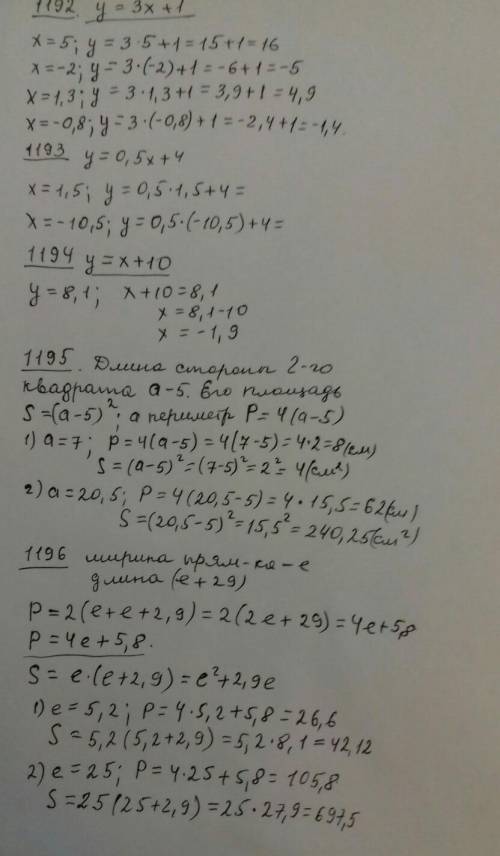 1192. y = 3x+1
x=5; y = 3·5+1=15+1=16
x=-2; y= 3·(-2)+1=-6+1=-5
x=1,3; y = 3·1,3+1=3,9+1=4,9
x=-0,8; y=3·(-0,8)+1=-2,4+1=-1,4.
1193 y=0,5x+4
x=1,5; y=0,5·1,5+4=
x=-10,5; y=0,5·(-10,5)+4=
1194 y=x+10
y=8,1; x+10=8,1
x=8,1-10
x = -1,9
1195. Длина стороны 2-го
квадрата a-5. Его площадь
S=(a-5)²; а периметр P=4(a-5)
1) a=7; P=4(a-5)=4(7-5)=4·2=8(см)
S=(a-5)²=(7-5)²=2²=4(см²)
2) a=20,5; P=4(20,5-5)=4·15,5=62(см)
S=(20,5-5)²=15,5²=240,25(см²)
1196 ширина прям-ка-e
длина (e+29)
P=2(e+e+2,9)=2(2e+29)=4e+5,8
P=4e+5,8.
S=e·(e+2,9)=e²+2,9e
1) e=5,2; P=4·5,2+5,8=26,6
S=5,2(5,2+2,9)=5,2·8,1=42,12
2) e=25; P=4·25+5,8=105,8
S=25(25+2,9)=25·27,9=697,5